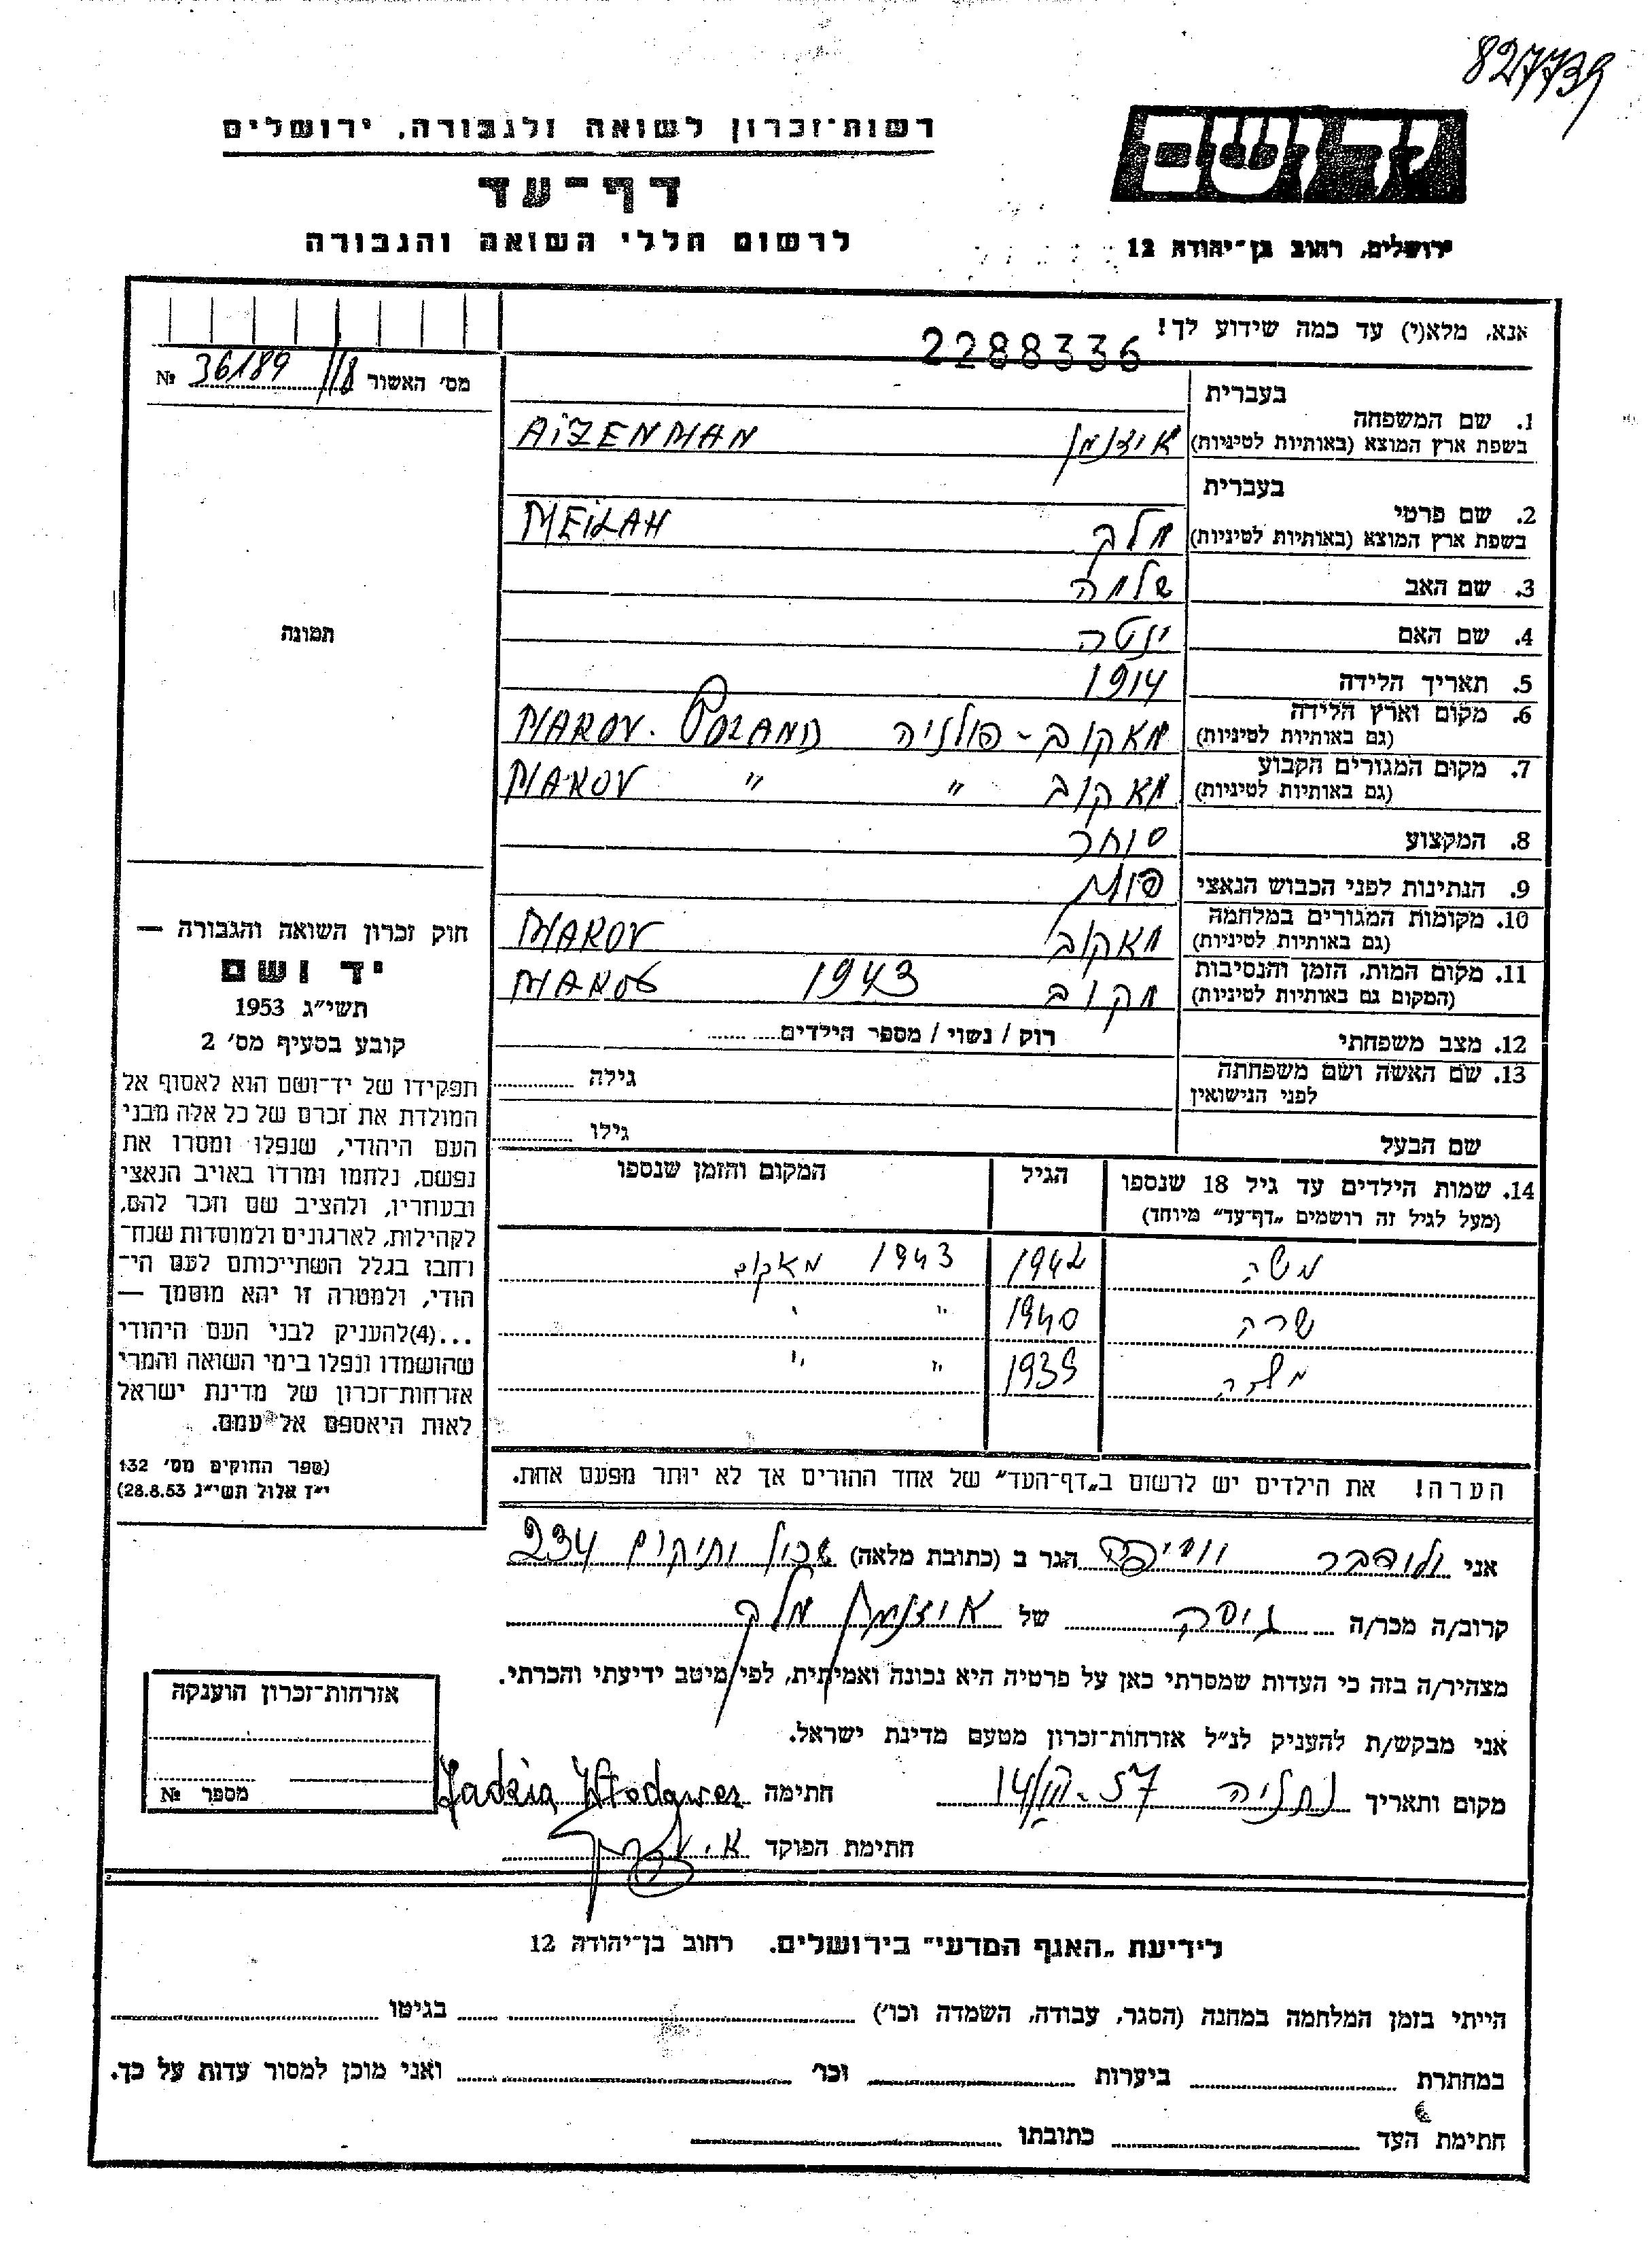 827739
רשות־זכרון לשואה ולגבורה, ירושלים
דף־עד
לרשום חללי השואה והגבורה
יד ושם
ירושלים, רחוב בן־יהודה 12
אנא, מלא(י) עד כמה שידוע לך!
2288336
מס׳ האשור 36189/118 №
תמונה
בעברית
1. שם המשפחה
בשפת ארץ המוצא (באותיות לטיניות) איזנמן AiZENMAN
בעברית
2. שם פרטי
בשפת ארץ המוצא (באותיות לטיניות) מלך MEiLAH
3. שם האב שלמה
4. שם האם ינטה
5. תאריך הלידה 1914
6. מקום וארץ הלידה
(גם באותיות לטיניות) מאקוב - פולניה MAKOV. POLAND
7. מקום המגורים הקבוע
(גם באותיות לטיניות) מאקוב " MAKOV "
8. המקצוע סוחר
9. הנתינות לפני הכבוש הנאצי
10. מקומות המגורים במלחמה
(גם באותיות לטיניות) מאקוב MAKOV
11. מקום המות, הזמן והנסיבות
(המקום גם באותיות לטיניות) מקוב 1943 MAKOV
12. מצב משפחתי רוק / נשוי / מספר הילדים
13. שם האשה ושם משפחתה
לפני הנישואין גילה
שם הבעל גילו
14. שמות הילדים עד גיל 18 שנספו
(מעל לגיל זה רושמים „דף־עד" מיוחד)
הגיל
המקום והזמן שנספו
משה 1942 1943 מאקוב
שרה 1940 " "
1939 " "
הערה! את הילדים יש לרשום ב„דף־העד" של אחד ההורים אך לא יותר מפעם אחת.
חוק זכרון השואה והגבורה —
יד ושם
תשי״ג 1953
קובע בסעיף מס׳ 2
תפקידו של יד־ושם הוא לאסוף אל
המולדת את זכרם של כל אלה מבני
העם היהודי, שנפלו ומסרו את
נפשם, נלחמו ומרדו באויב הנאצי
ובעוזריו, ולהציב שם וזכר להם,
לקהילות, לארגונים ולמוסדות שנח־
רבו בגלל השתייכותם לעם הי־
הודי, ולמטרה זו יהא מוסמך —
...(4) להעניק לבני העם היהודי
שהושמדו ונפלו בימי השואה והמרי
אזרחות־זכרון של מדינת ישראל
לאות היאספם אל עמם.
(ספר החוקים מס׳ 132
י״ז אלול תשי״ג 28.8.53)
אני הגר ב (כתובת מלאה) שכון ותיקים 234
קרוב/ה מכר/ה גיסה של איזנמן מלך
מצהיר/ה בזה כי העדות שמסרתי כאן על פרטיה היא נכונה ואמיתית, לפי מיטב ידיעתי והכרתי.
אני מבקש/ת להעניק לנ״ל אזרחות־זכרון מטעם מדינת ישראל.
מקום ותאריך נתניה חתימה Jadzia Włodawer
חתימת הפוקד
אזרחות־זכרון הוענקה
מספר №
לידיעת „האגף המדעי" בירושלים. רחוב בן־יהודה 12
הייתי בזמן המלחמה במחנה (הסגר, עבודה, השמדה וכו׳) בגיטו
במחתרת ביערות וכו׳ ואני מוכן למסור עדות על כך.
חתימת העד כתובתו